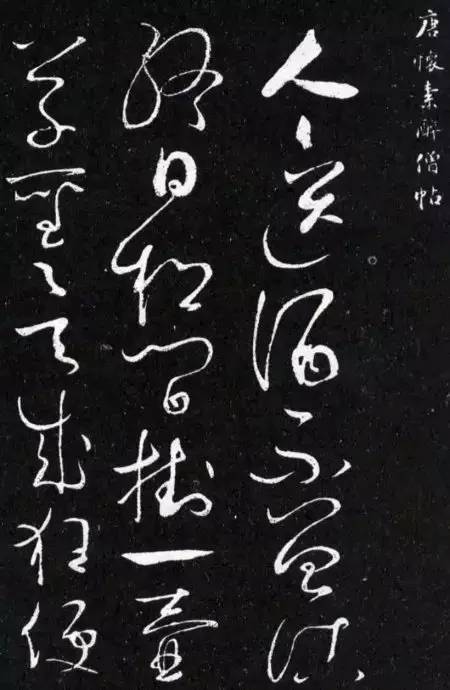 唐懷素醉僧帖
人〻送酒不曾沽
終日松間掛一壺
草聖欲成狂便